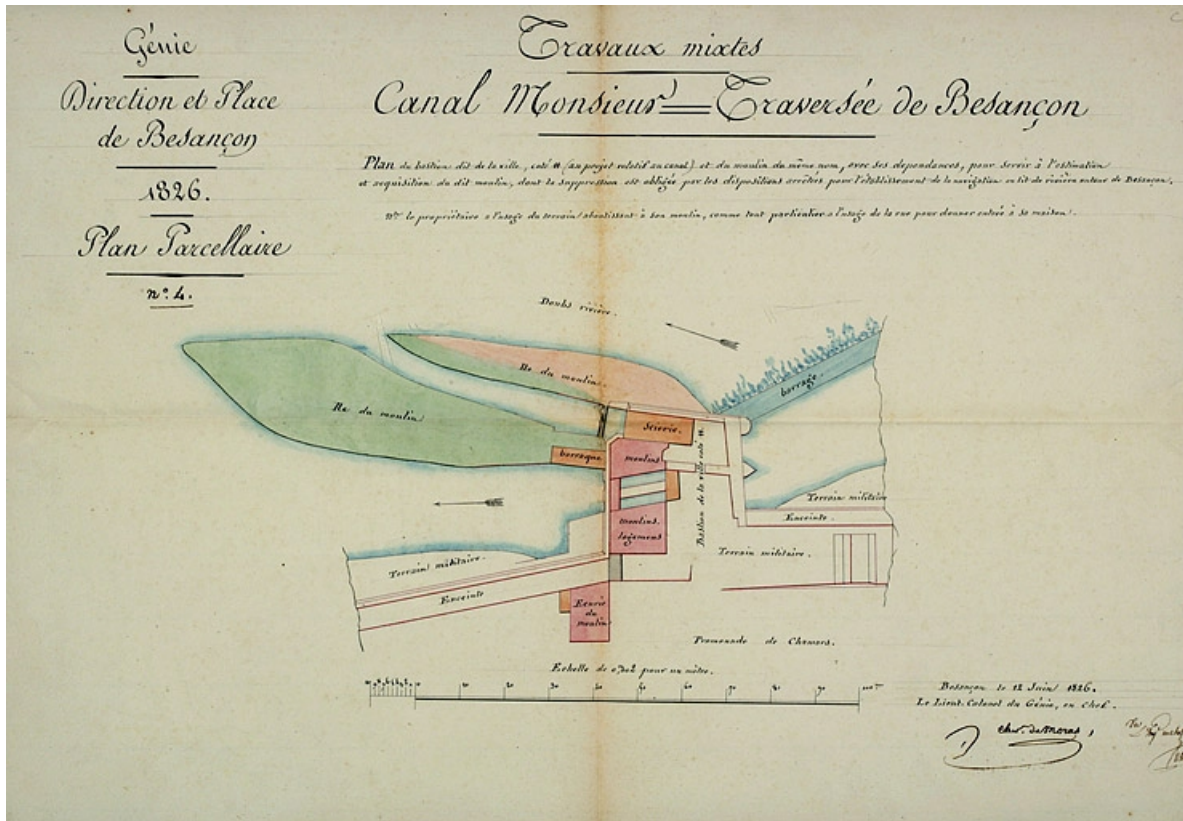 Génie
Direction et Place
de Besançon
1826.
Plan Parcellaire
nº. 4.
Travaux mixtes
Canal Monsieur = Traversée de Besançon
Plan du bastion dit de la ville, coté (au projet relatif au canal) et du moulin du même nom, avec ses dépendances, pour servir à l'estimation
et acquisition du dit moulin, dont la suppression est obligée par les dispositions arrêtées pour l'établissement de la navigation en lit de rivière autour de Besançon.
le propriétaire a l'usage du terrain aboutissant à son moulin, comme tout particulier a l'usage de la rue pour donner entrée à sa maison.
Doubs rivière.
Ile du moulin
Ile du moulin
barrage.
Scierie.
barraque
moulins
Bastion de la ville coté
moulins
logemens
Terrain militaire
Enceinte
Terrain militaire.
Terrain militaire.
Enceinte
Ecurie
du
moulin
Promenade de Chamars.
Echelle de pour un mètre.
10 20 30 40 50 60 70 80 90 100
Besançon le 12 Juin 1826.
Le Lieut. Colonel du Génie, en Chef.
Chev. de Moras